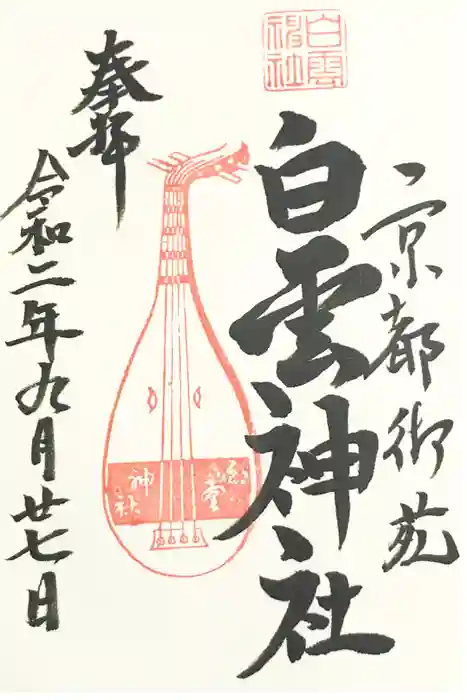 京都御苑
白雲神社
白雲神社
奉拝
白雲神社
令和二年九月廿七日